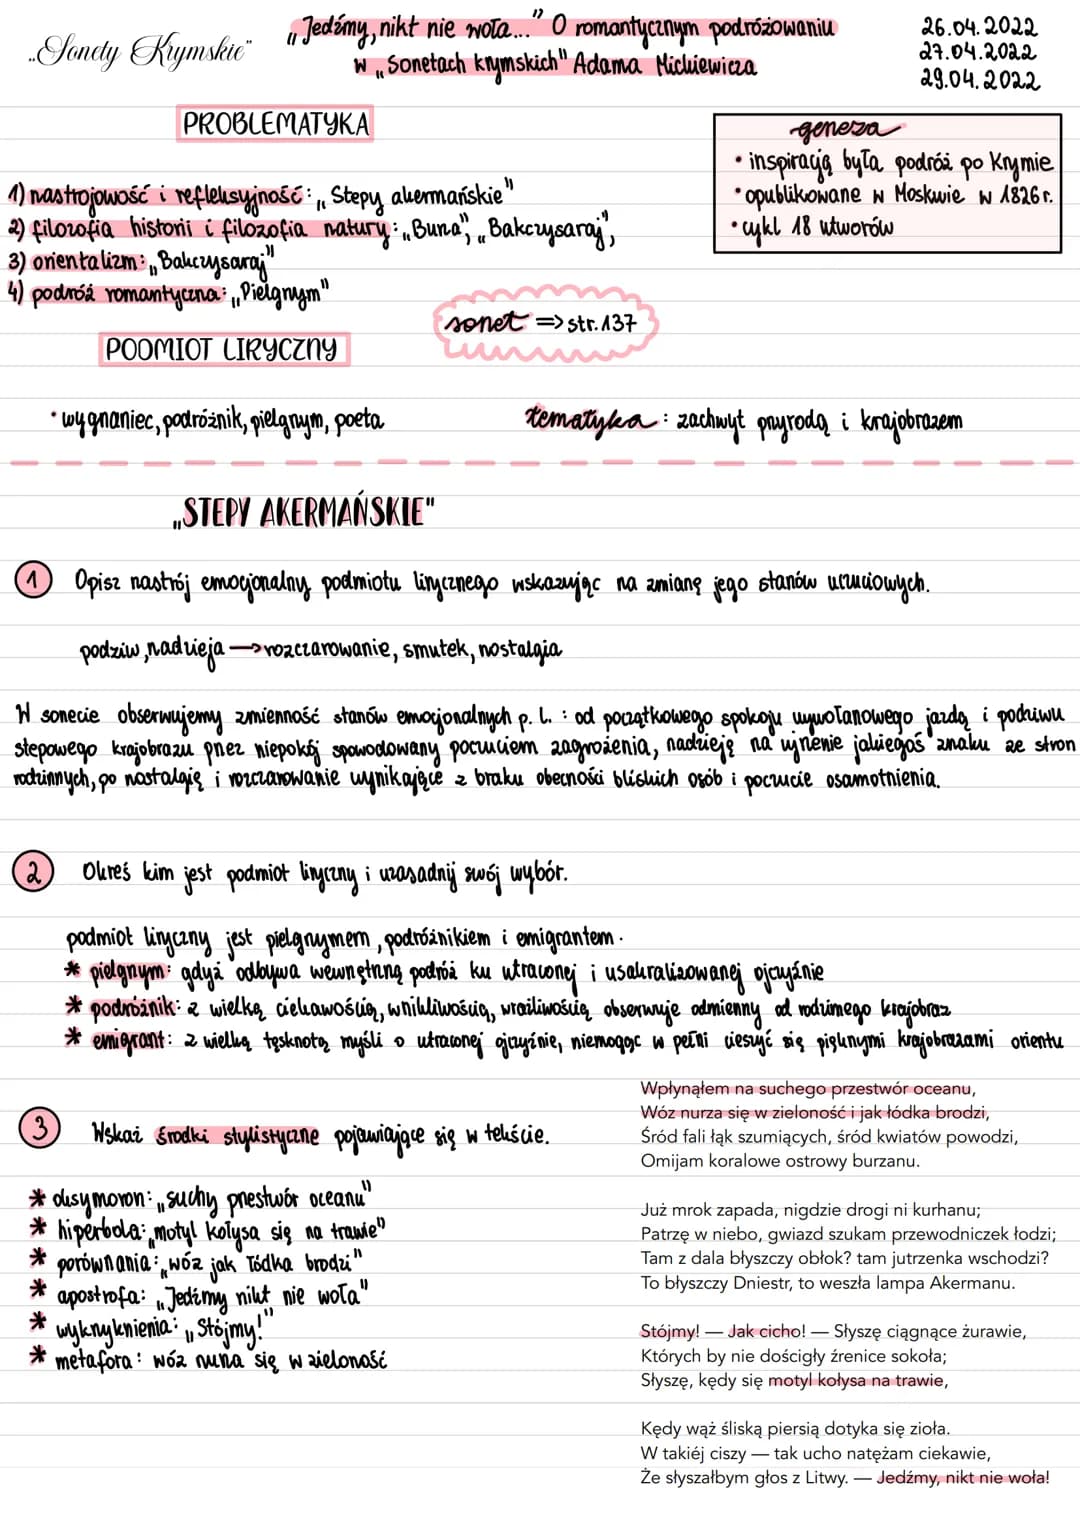 „Sonety Krymskie"
„Jedźmy, nikt nie woła..." O romantycznym podróżowaniu
w „Sonetach krymskich" Adama Mickiewicza
26.04.2022
27.04.2022
29.04.2022
PROBLEMATYKA
1) nastrojowość i refleksyjność: „Stepy akermańskie"
2) filozofia historii i filozofia natury: „Burza", „Bakczysaraj",
3) orientalizm: „Bakczysaraj"
4) podróż romantyczna: „Pielgrzym"
geneza
• inspiracją była podróż po Krymie
• opublikowane w Moskwie w 1826 r.
• cykl 18 utworów
sonet => str. 137
PODMIOT LIRYCZNY
• wygnaniec, podróżnik, pielgrzym, poeta
tematyka: zachwyt przyrodą i krajobrazem
„STEPY AKERMAŃSKIE"
1 Opisz nastrój emocjonalny podmiotu lirycznego wskazując na zmianę jego stanów uczuciowych.
podziw, nadzieja → rozczarowanie, smutek, nostalgia
W sonecie obserwujemy zmienność stanów emocjonalnych p. l. : od początkowego spokoju wywołanowego jazdą i podziwu
stepowego krajobrazu przez niepokój spowodowany poczuciem zagrożenia, nadzieję na ujrzenie jakiegoś znaku ze stron
rodzinnych, po nostalgię i rozczarowanie wynikające z braku obecności bliskich osób i poczucie osamotnienia.
2 Okreś kim jest podmiot liryczny i uzasadnij swój wybór.
podmiot liryczny jest pielgrzymem, podróżnikiem i emigrantem.
* pielgrzym: gdyż odbywa wewnętrzną podróż ku utraconej i usakralizowanej ojczyźnie
* podróżnik: z wielką ciekawością, wnikliwością, wrażliwością obserwuje odmienny od rodzimego krajobraz
* emigrant: z wielką tęsknotą myśli o utraconej ojczyźnie, niemogąc w pełni cieszyć się pięknymi krajobrazami orientu
3 Wskaż środki stylistyczne pojawiające się w tekście.
* oksymoron: „suchy przestwór oceanu"
* hiperbola: „motyl kołysa się na trawie"
* porównania: „wóz jak łódka brodzi"
* apostrofa: „Jedźmy nikt nie woła"
* wykrzyknienia: „Stójmy!"
* metafora: wóz nurza się w zieloność
Wpłynąłem na suchego przestwór oceanu,
Wóz nurza się w zieloność i jak łódka brodzi,
Śród fali łąk szumiących, śród kwiatów powodzi,
Omijam koralowe ostrowy burzanu.
Już mrok zapada, nigdzie drogi ni kurhanu;
Patrzę w niebo, gwiazd szukam przewodniczek łodzi;
Tam z dala błyszczy obłok? tam jutrzenka wschodzi?
To błyszczy Dniestr, to weszła lampa Akermanu.
Stójmy! — Jak cicho! — Słyszę ciągnące żurawie,
Których by nie dościgły źrenice sokoła;
Słyszę, kędy się motyl kołysa na trawie,
Kędy wąż śliską piersią dotyka się zioła.
W takiéj ciszy — tak ucho natężam ciekawie,
Że słyszałbym głos z Litwy. — Jedźmy, nikt nie woła!